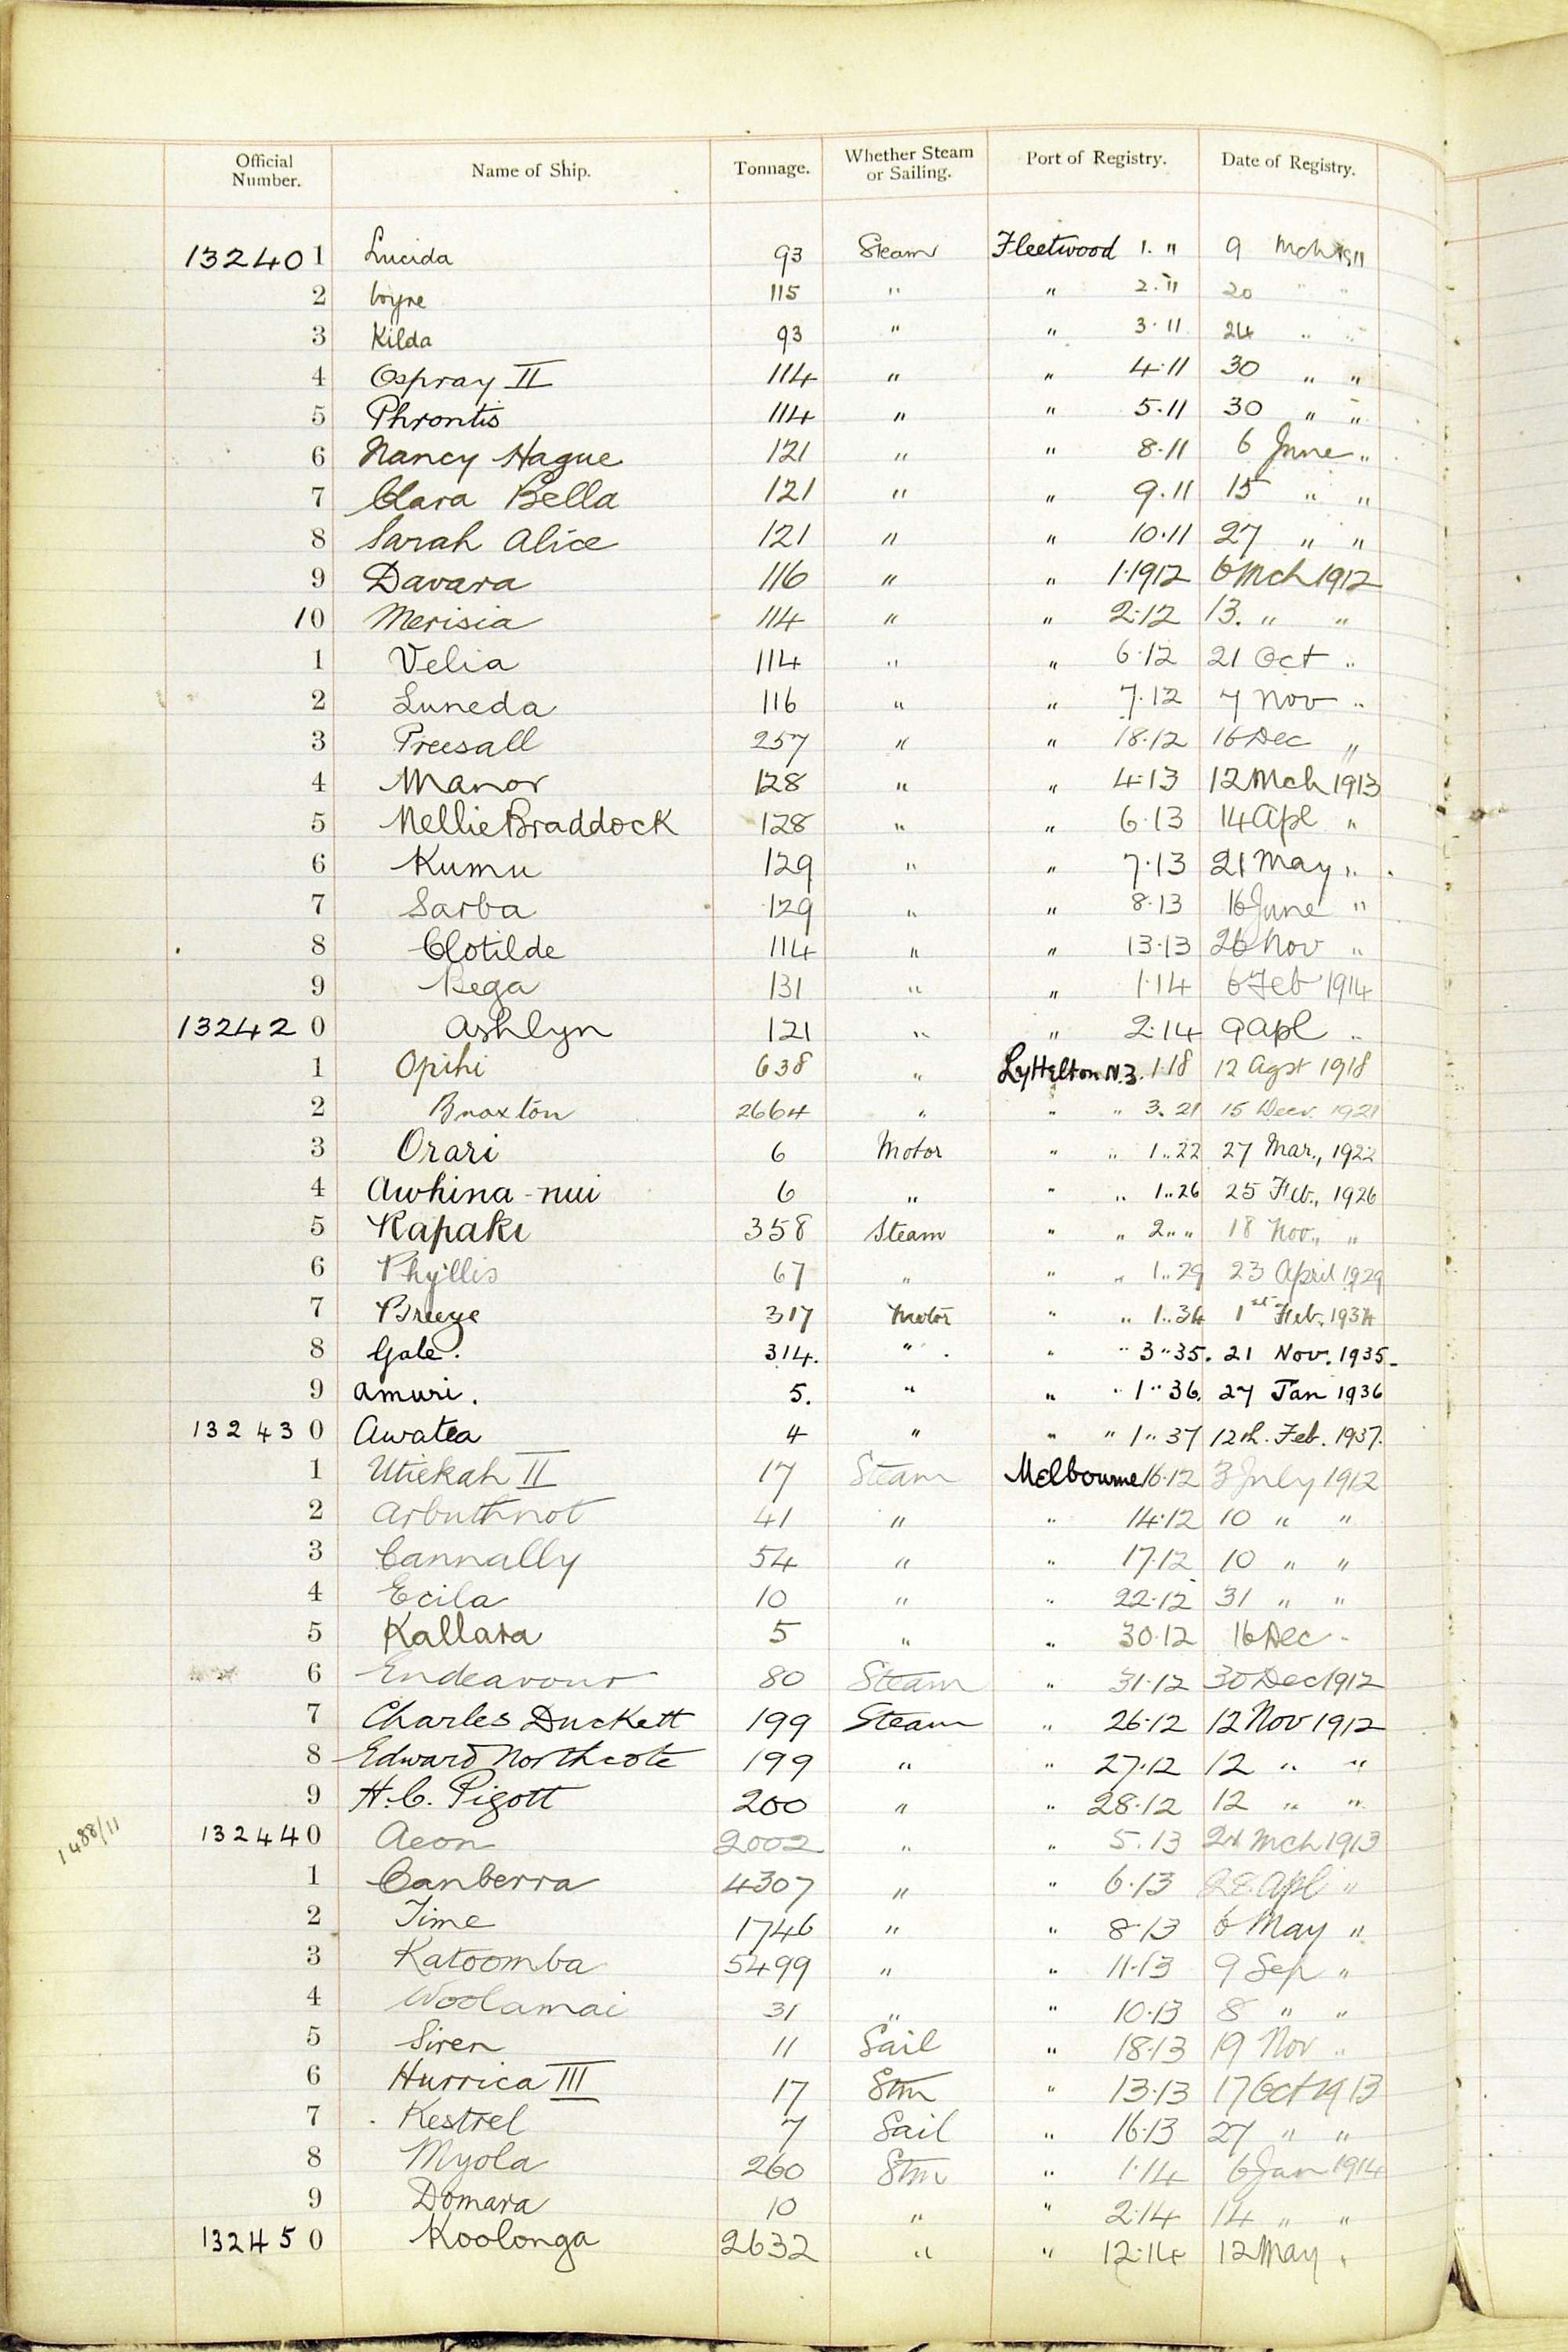 Official Number. Name of Ship. Tonnage. Whether Steam or Sailing. Port of Registry. Date of Registry.
132401 Lucida 93 Steam Fleetwood 1. " 9 Mch 1911
2 Coyne 115 " " 2.11 20 " "
3 Kilda 93 " " 3.11 24 " "
4 Ospray II 114 " " 4.11 30 " "
5 Phrontis 114 " " 5.11 30 " "
6 Nancy Hague 121 " " 8.11 6 June "
7 Clara Bella 121 " " 9.11 15 " "
8 Sarah Alice 121 " " 10.11 27 " "
9 Davara 116 " " 1.1912 6 Mch 1912
10 Merisia 114 " " 2.12 13. " "
1 Velia 114 " " 6.12 21 Oct "
2 Luneda 116 " " 7.12 7 Nov "
3 Preesall 257 " " 18.12 16 Dec "
4 Manor 128 " " 4.13 12 Mch 1913
5 Nellie Braddock 128 " " 6.13 14 Apl "
6 Kumu 129 " " 7.13 21 May "
7 Sarba 129 " " 8.13 16 June "
8 Clotilde 114 " " 13.13 26 Nov "
9 Bega 131 " " 1.14 6 Feb 1914
132420 Ashlyn 121 " " 2.14 9 Apl "
1 Opihi 638 " Lyttelton N.Z. 1.18 12 Agst 1918
2 Broxton 2664 " " " 3.21 15 Decr. 1921
3 Orari 6 Motor " " 1..22 27 Mar., 1922
4 Awhina-nui 6 " " " 1..26 25 Feb., 1926
5 Rapaki 358 Steam " " 2.. " 18 Nov., "
6 Phyllis 67 " " " 1..29 23 April 1929
7 Breeze 317 Motor " " 1..34 1st Feb. 1934
8 Gale. 314. " " " 3..35. 21 Nov. 1935.
9 Amuri. 5. " " " 1..36. 27 Jan 1936
132430 Awatea 4 " " " 1..37 12th. Feb. 1937.
1 Utiekah II 17 Steam Melbourne 16.12 3 July 1912
2 Arbuthnot 41 " " 14.12 10 " "
3 Cannally 54 " " 17.12 10 " "
4 Ecila 10 " " 22.12 31 " "
5 Kallara 5 " " 30.12 16 Dec "
6 Endeavour 80 Steam " 31.12 30 Dec 1912
7 Charles Duckett 199 Steam " 26.12 12 Nov 1912
8 Edward Northcote 199 " " 27.12 12 " "
9 H.C. Pigott 200 " " 28.12 12 " "
1488/11
132440 Aeon 2002 " " 5.13 Mch 1913
1 Canberra 4307 " " 6.13 28 Apl "
2 Time 1746 " " 8.13 6 May "
3 Katoomba 5499 " " 11.13 9 Sep "
4 Woolamai 31 " " 10.13 8 " "
5 Siren 11 Sail " 18.13 19 Nov "
6 Hurrica III 17 Stm " 13.13 17 Oct 1913
7 Kestrel 7 Sail " 16.13 27 " "
8 Myola 260 Stm " 1.14 6 Jan 1914
9 Domara 10 " " 2.14 14 " "
132450 Koolonga 2632 " " 12.14 12 May "